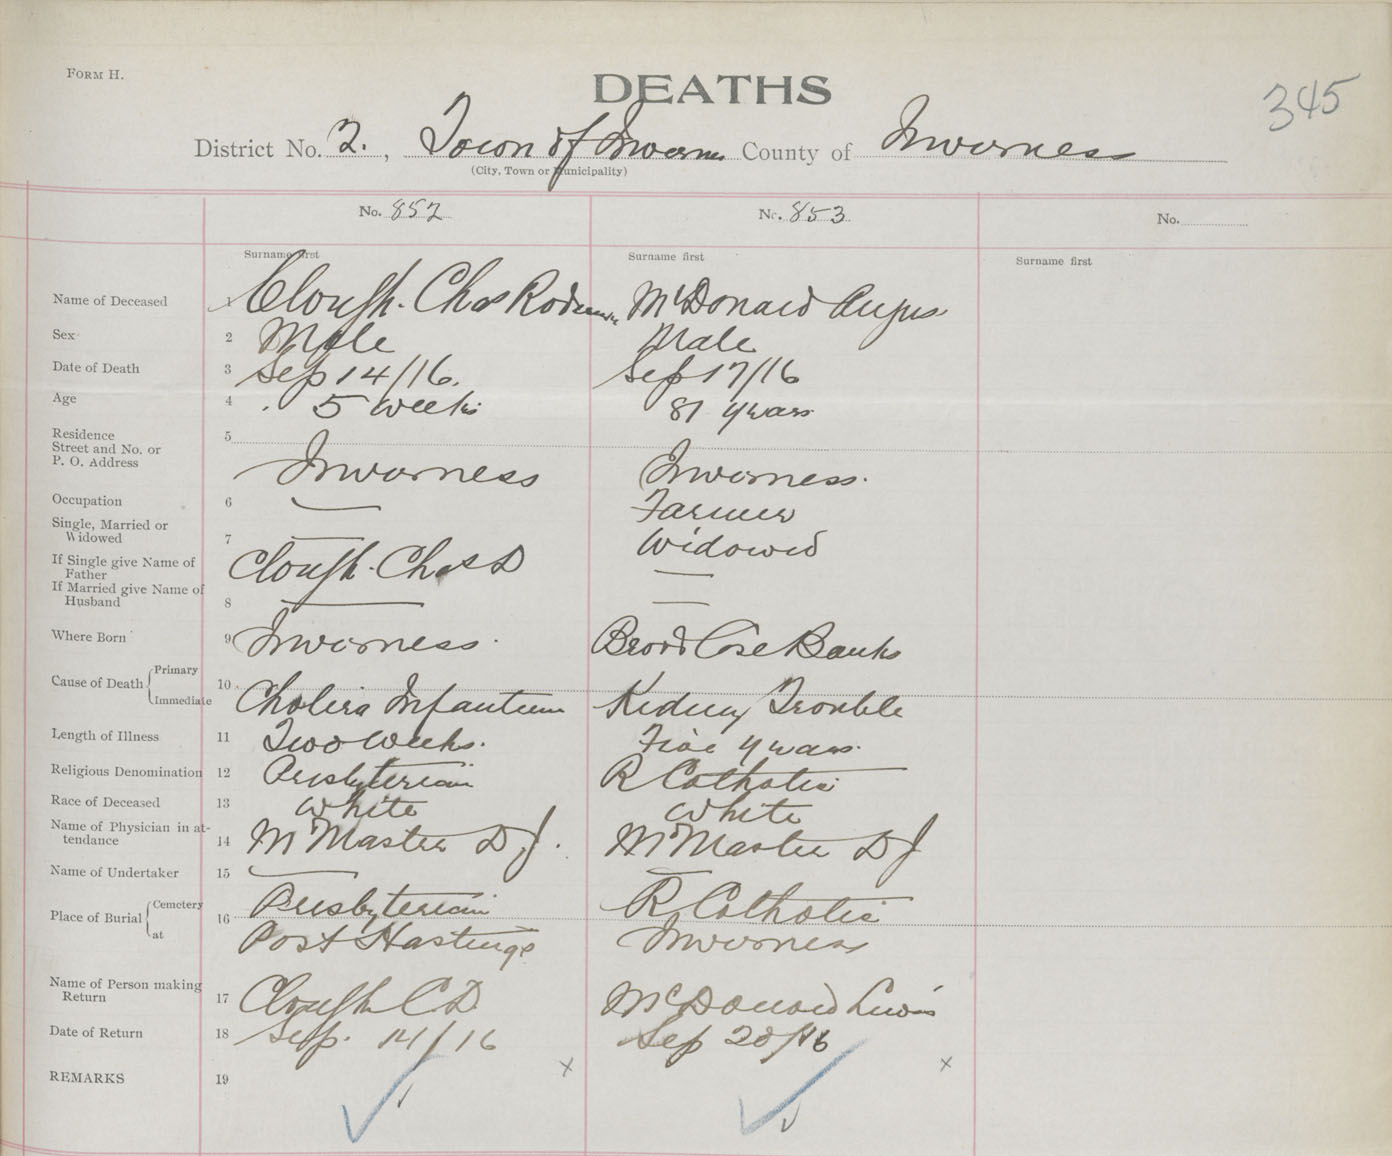 FORM H.
DEATHS
345
District No. 2. , Town of Inverness County of Inverness
(City, Town or Municipality)
No. 852 No. 853 No.
Surname first Surname first Surname first
Name of Deceased 1 Clough. Chas McDonald Angus
Sex 2 Male Male
Date of Death 3 Sep 14/16. Sep 17/16
Age 4 5 weeks 81 years
Residence 5
Street and No. or
P. O. Address Inverness Inverness.
Occupation 6 — Farmer
Single, Married or
Widowed 7 — Widowed
If Single give Name of
Father Clough. Chas D —
If Married give Name of
Husband 8 — —
Where Born 9 Inverness. Broad Cove Banks
Cause of Death Primary 10
Immediate Cholera Infantum Kidney Trouble
Length of Illness 11 Two weeks. Five years.
Religious Denomination 12 Presbyterian R Catholic
Race of Deceased 13 White White
Name of Physician in at-
tendance 14 McMaster D J. McMaster D J
Name of Undertaker 15 — —
Place of Burial Cemetery 16 Presbyterian R Catholic
at Port Hastings Inverness
Name of Person making
Return 17 Clough C D McDonald Lewis
Date of Return 18 Sep. 14/16 Sep 20/16
REMARKS 19 x x